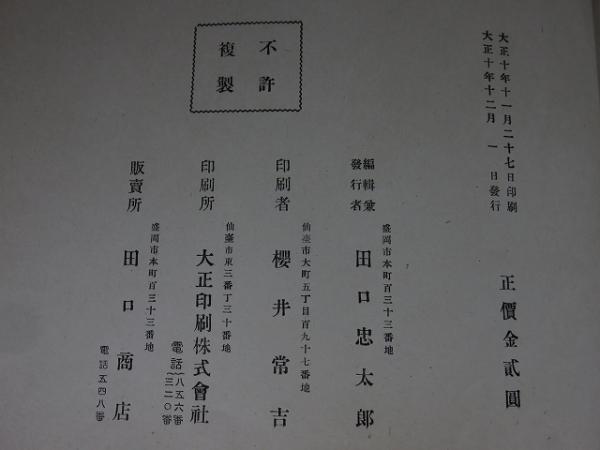 大正十年十一月二十七日印刷
大正十年十二月一日發行
正價金貳圓
不許
複製
編輯兼
發行者
盛岡市本町百三十三番地
田口忠太郎
印刷者
仙臺市大町五丁目百九十七番地
櫻井常吉
印刷所
仙臺市東三番丁三十番地
大正印刷株式會社
電話
八五六番
三二〇番
販賣所
盛岡市本町百三十三番地
田口商店
電話五四八番